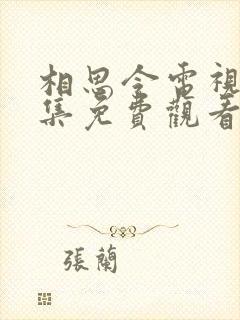 相思令電視
集免費觀看
張蘭